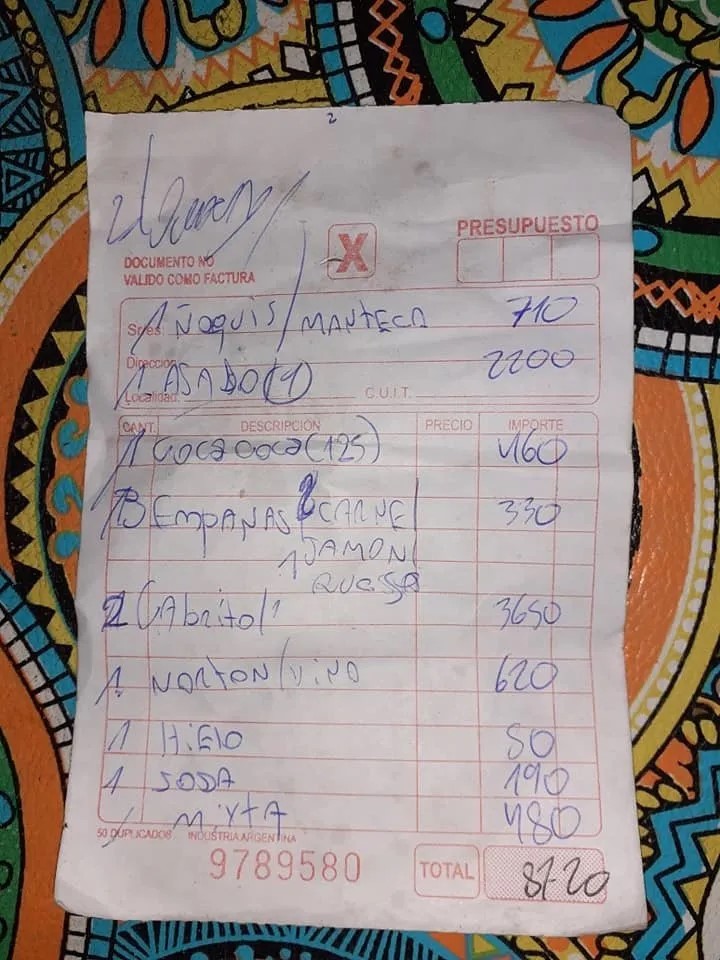 2
DOCUMENTO NO
VALIDO COMO FACTURA
X
PRESUPUESTO
Sres. 1 ÑOQUIS/MANTECA 710
Dirección 2200
1 ASADO (1)
Localidad: C.U.I.T.
CANT. DESCRIPCIÓN PRECIO IMPORTE
1 COCA COCA (125) 160
3 EMPANAS 2 CARNE 330
1 JAMON
2 CABrito/1 3650
1 NORTON/VINO 620
1 HIELO 50
1 SODA 190
MIXTA 180
50 DUPLICADOS INDUSTRIA ARGENTINA
9789580
TOTAL 8120